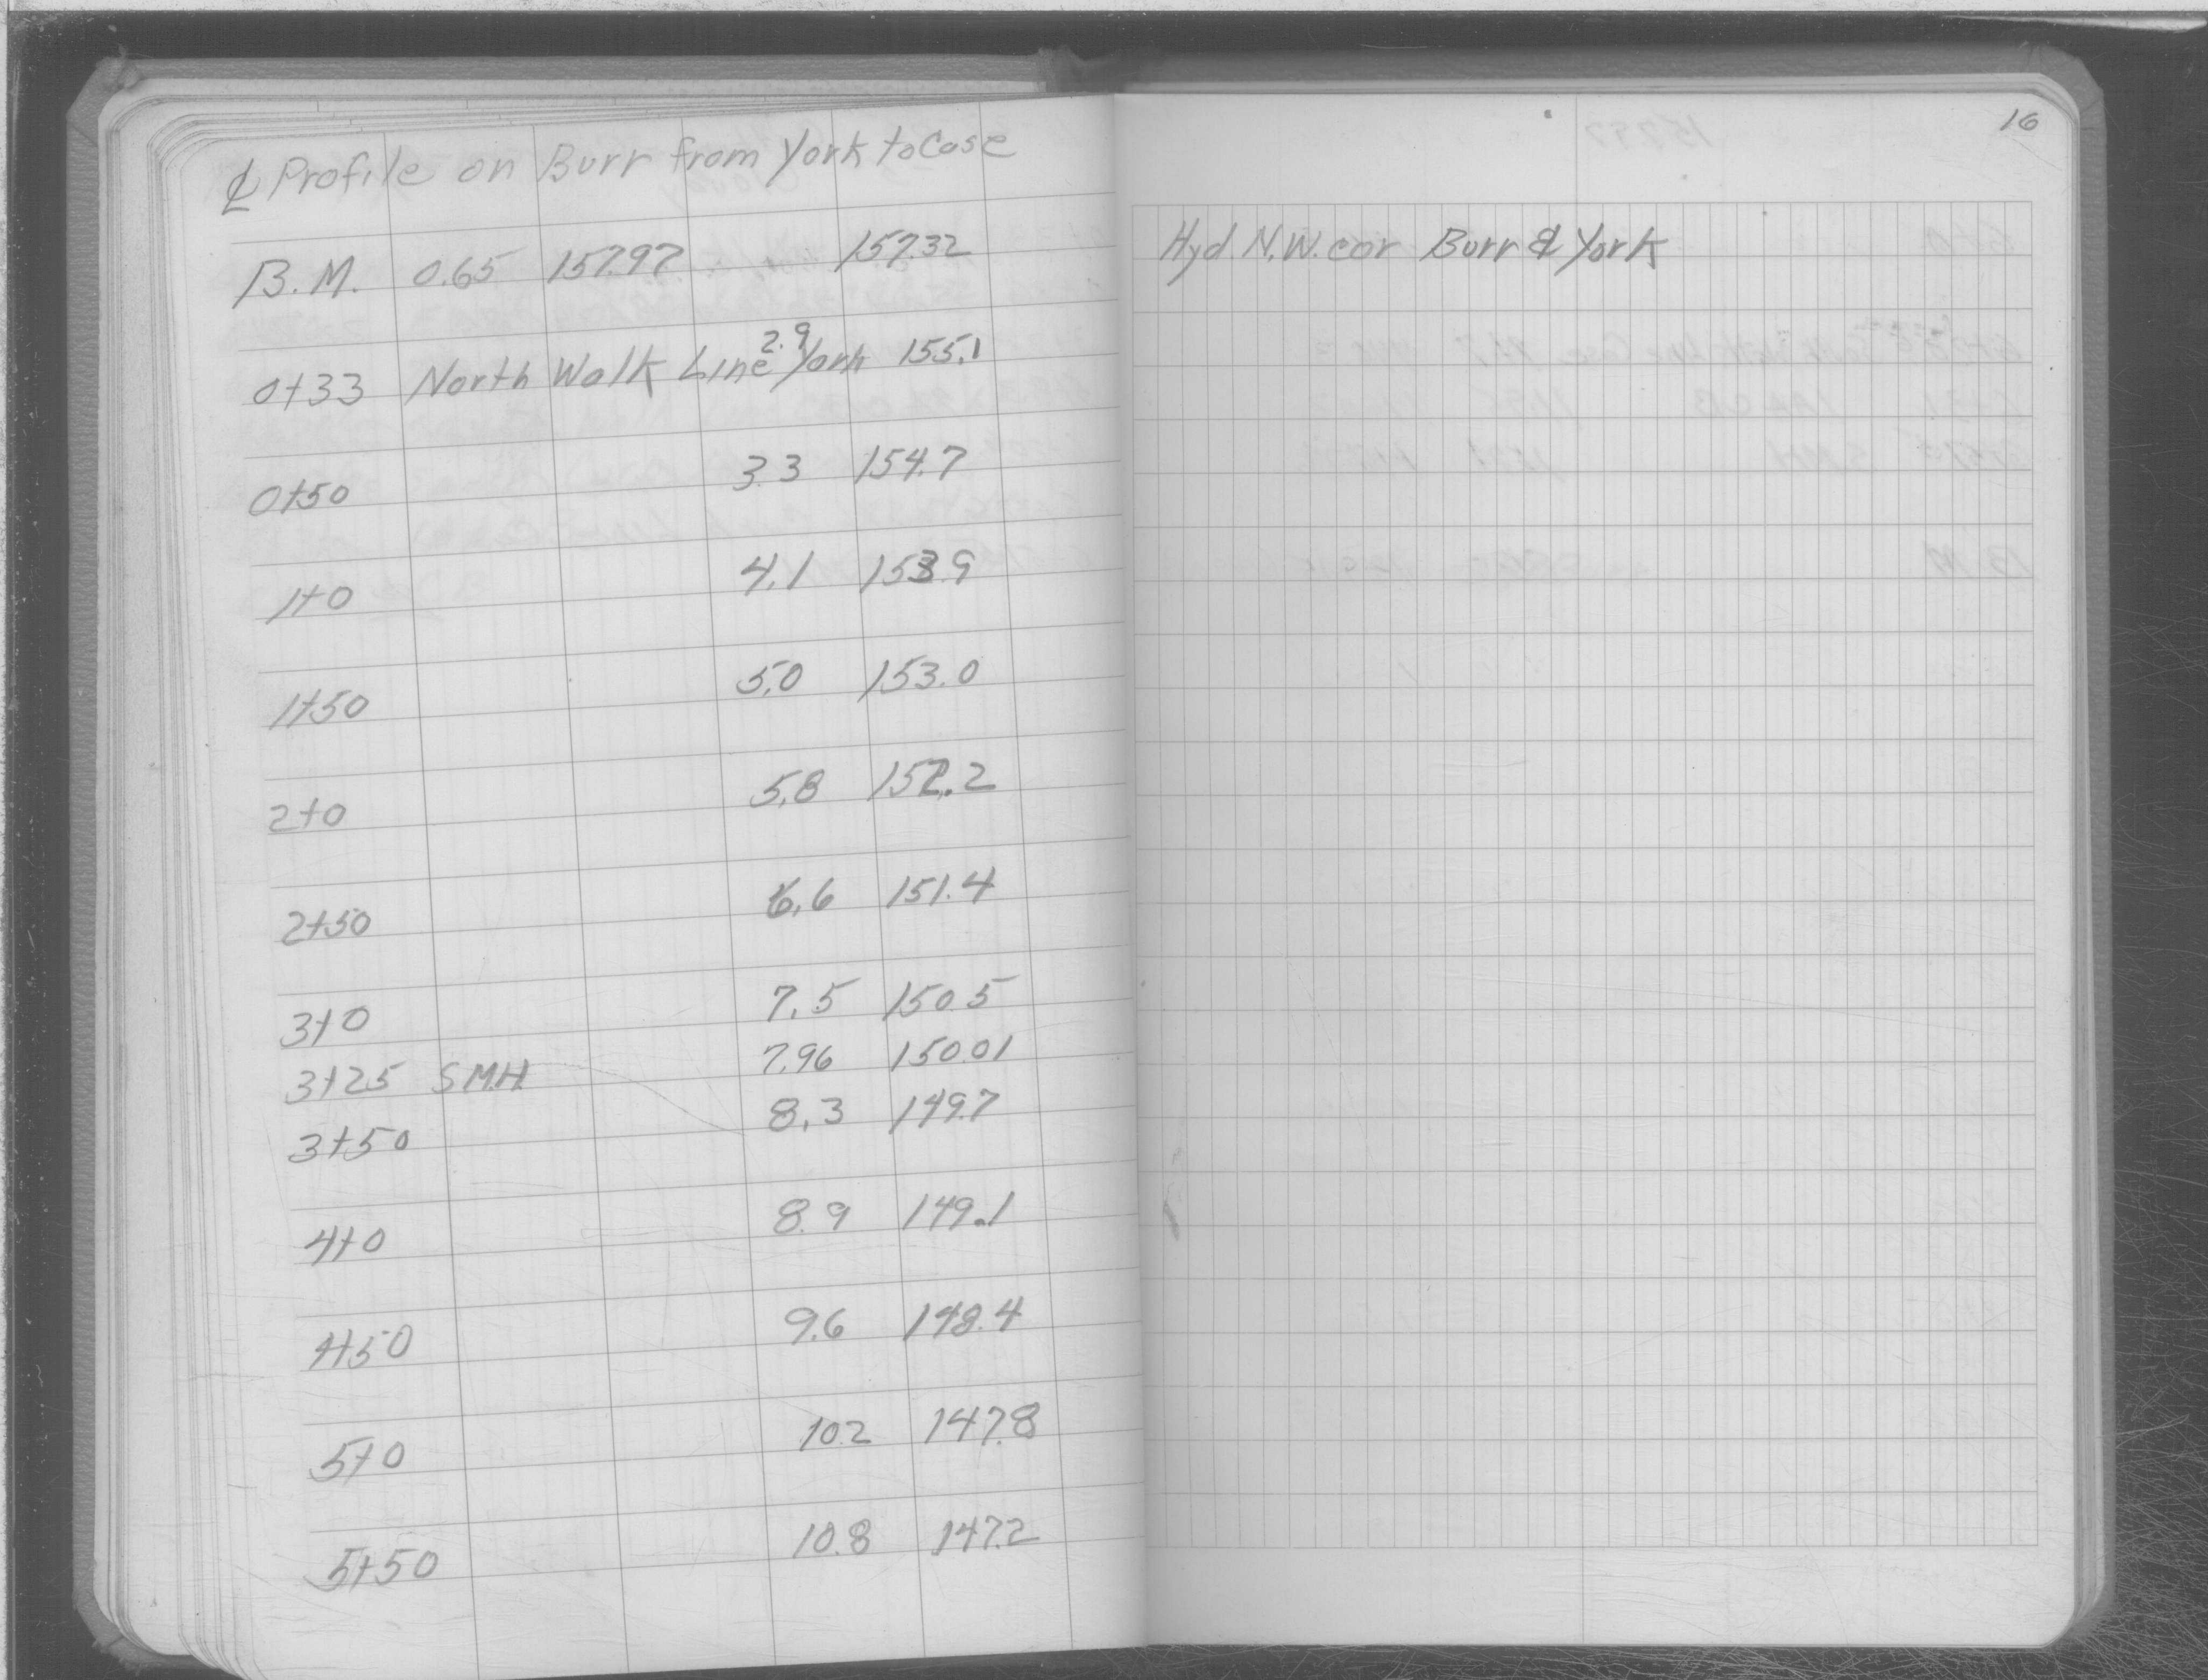 ℄ Profile on Burr from York to Case
B.M. 0.65 157.97 157.32
0+33 North Walk Line York 2.9 155.1
0+50 3.3 154.7
1+0 4.1 153.9
1+50 5.0 153.0
2+0 5.8 152.2
2+50 6.6 151.4
3+0 7.5 150.5
3+25 S.M.H. 7.96 150.01
3+50 8.3 149.7
4+0 8.9 149.1
4+50 9.6 148.4
5+0 10.2 147.8
5+50 10.8 147.2
16
Hyd. N.W. cor Burr & York